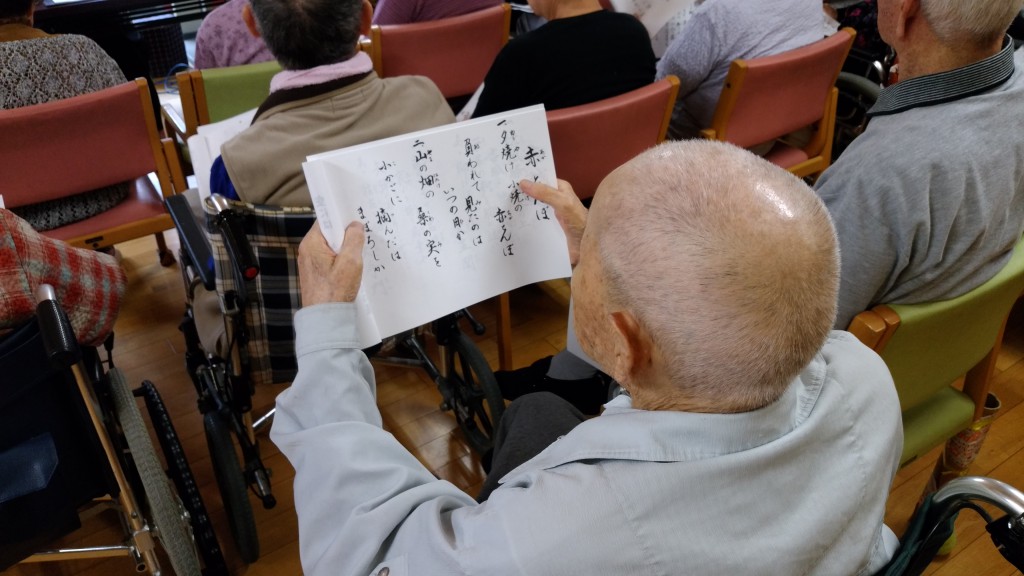 赤とんぼ
一 夕焼け 小焼の 赤とんぼ
負われて 見たのは
いつの日か
二 山の畑の 桑の実を
小かごに 摘んだは
まぼろしか